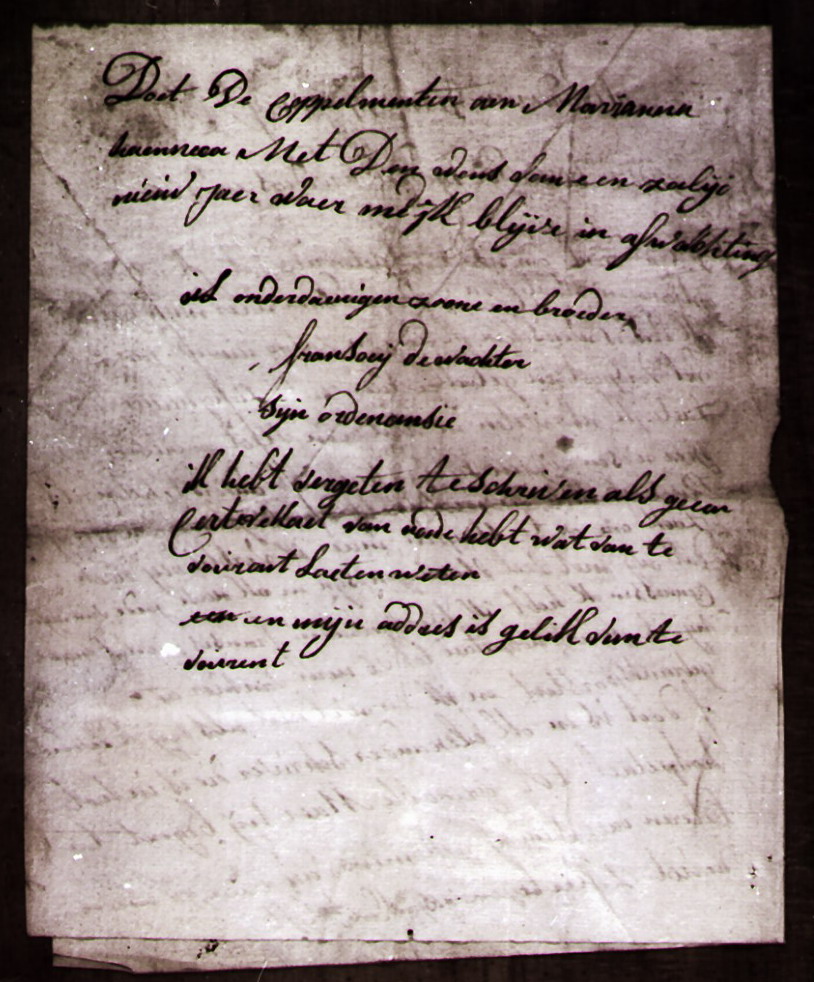 Doet De Complementen aen Marianna
haenneca Met Den Wens van een zalijg
nieuw Jaer Waer med Jk blijve in afwachting
ul onderdaenigen zoone en broeder
fransoij De wachter
Sijn ordenansie
ik hebt vergeten te Schreiven als geen
CertiveKaet van node hebt wat van te
voirent Laeten weten
en mijn addres is gelikk van te
voirent